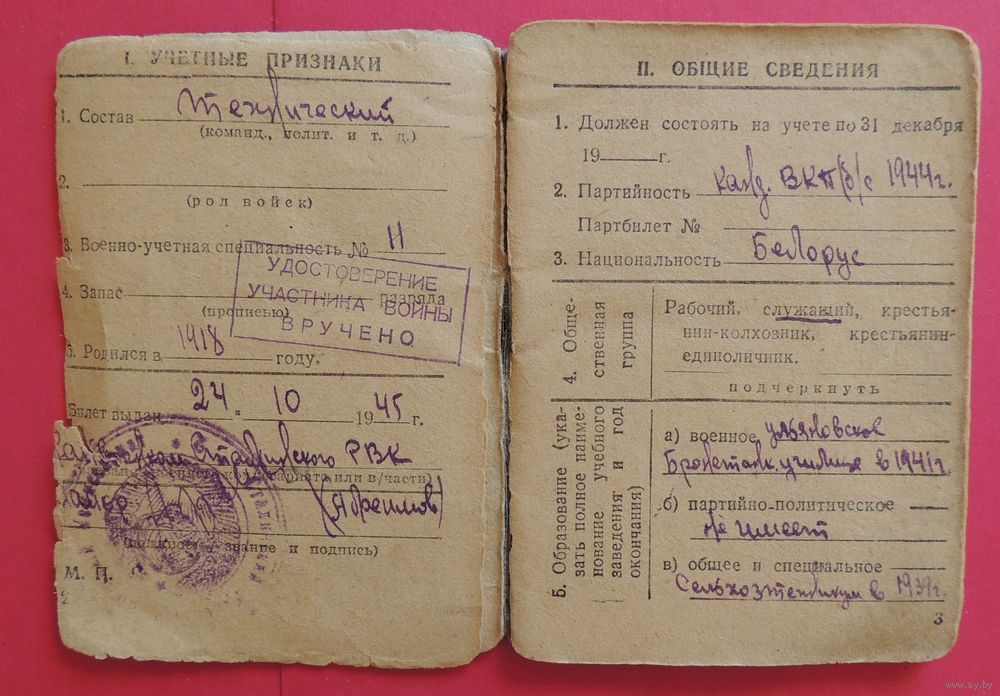 I. УЧЕТНЫЕ ПРИЗНАКИ
1. Состав Технический
(команд., полит. и т. д.)
2.
(род войск)
3. Военно-учетная специальность № 11
УДОСТОВЕРЕНИЕ
УЧАСТНИКА ВОЙНЫ
ВРУЧЕНО
4. Запас разряда
(прописью)
5. Родился в 1918 году.
Билет выдан 24 " 10 1945 г.
РВК
или в/части)
Майор
звание и подпись)
М. П.
2
II. ОБЩИЕ СВЕДЕНИЯ
1. Должен состоять на учете по 31 декабря
19 г.
2. Партийность канд. ВКП/б/ с 1944 г.
Партбилет №
3. Национальность Белорус
4. Обще-
ственная
группа
Рабочий, служащий, крестья-
нин-колхозник, крестьянин-
единоличник.
подчеркнуть
5. Образование (ука-
зать полное наиме-
нование учебного
заведения и год
окончания)
а) военное Ульяновское
Бронетанк. училище в 1941 г.
б) партийно-политическое
не имеет
в) общее и специальное
Сельхозтехникум в 1939 г.
3
www.ay.by